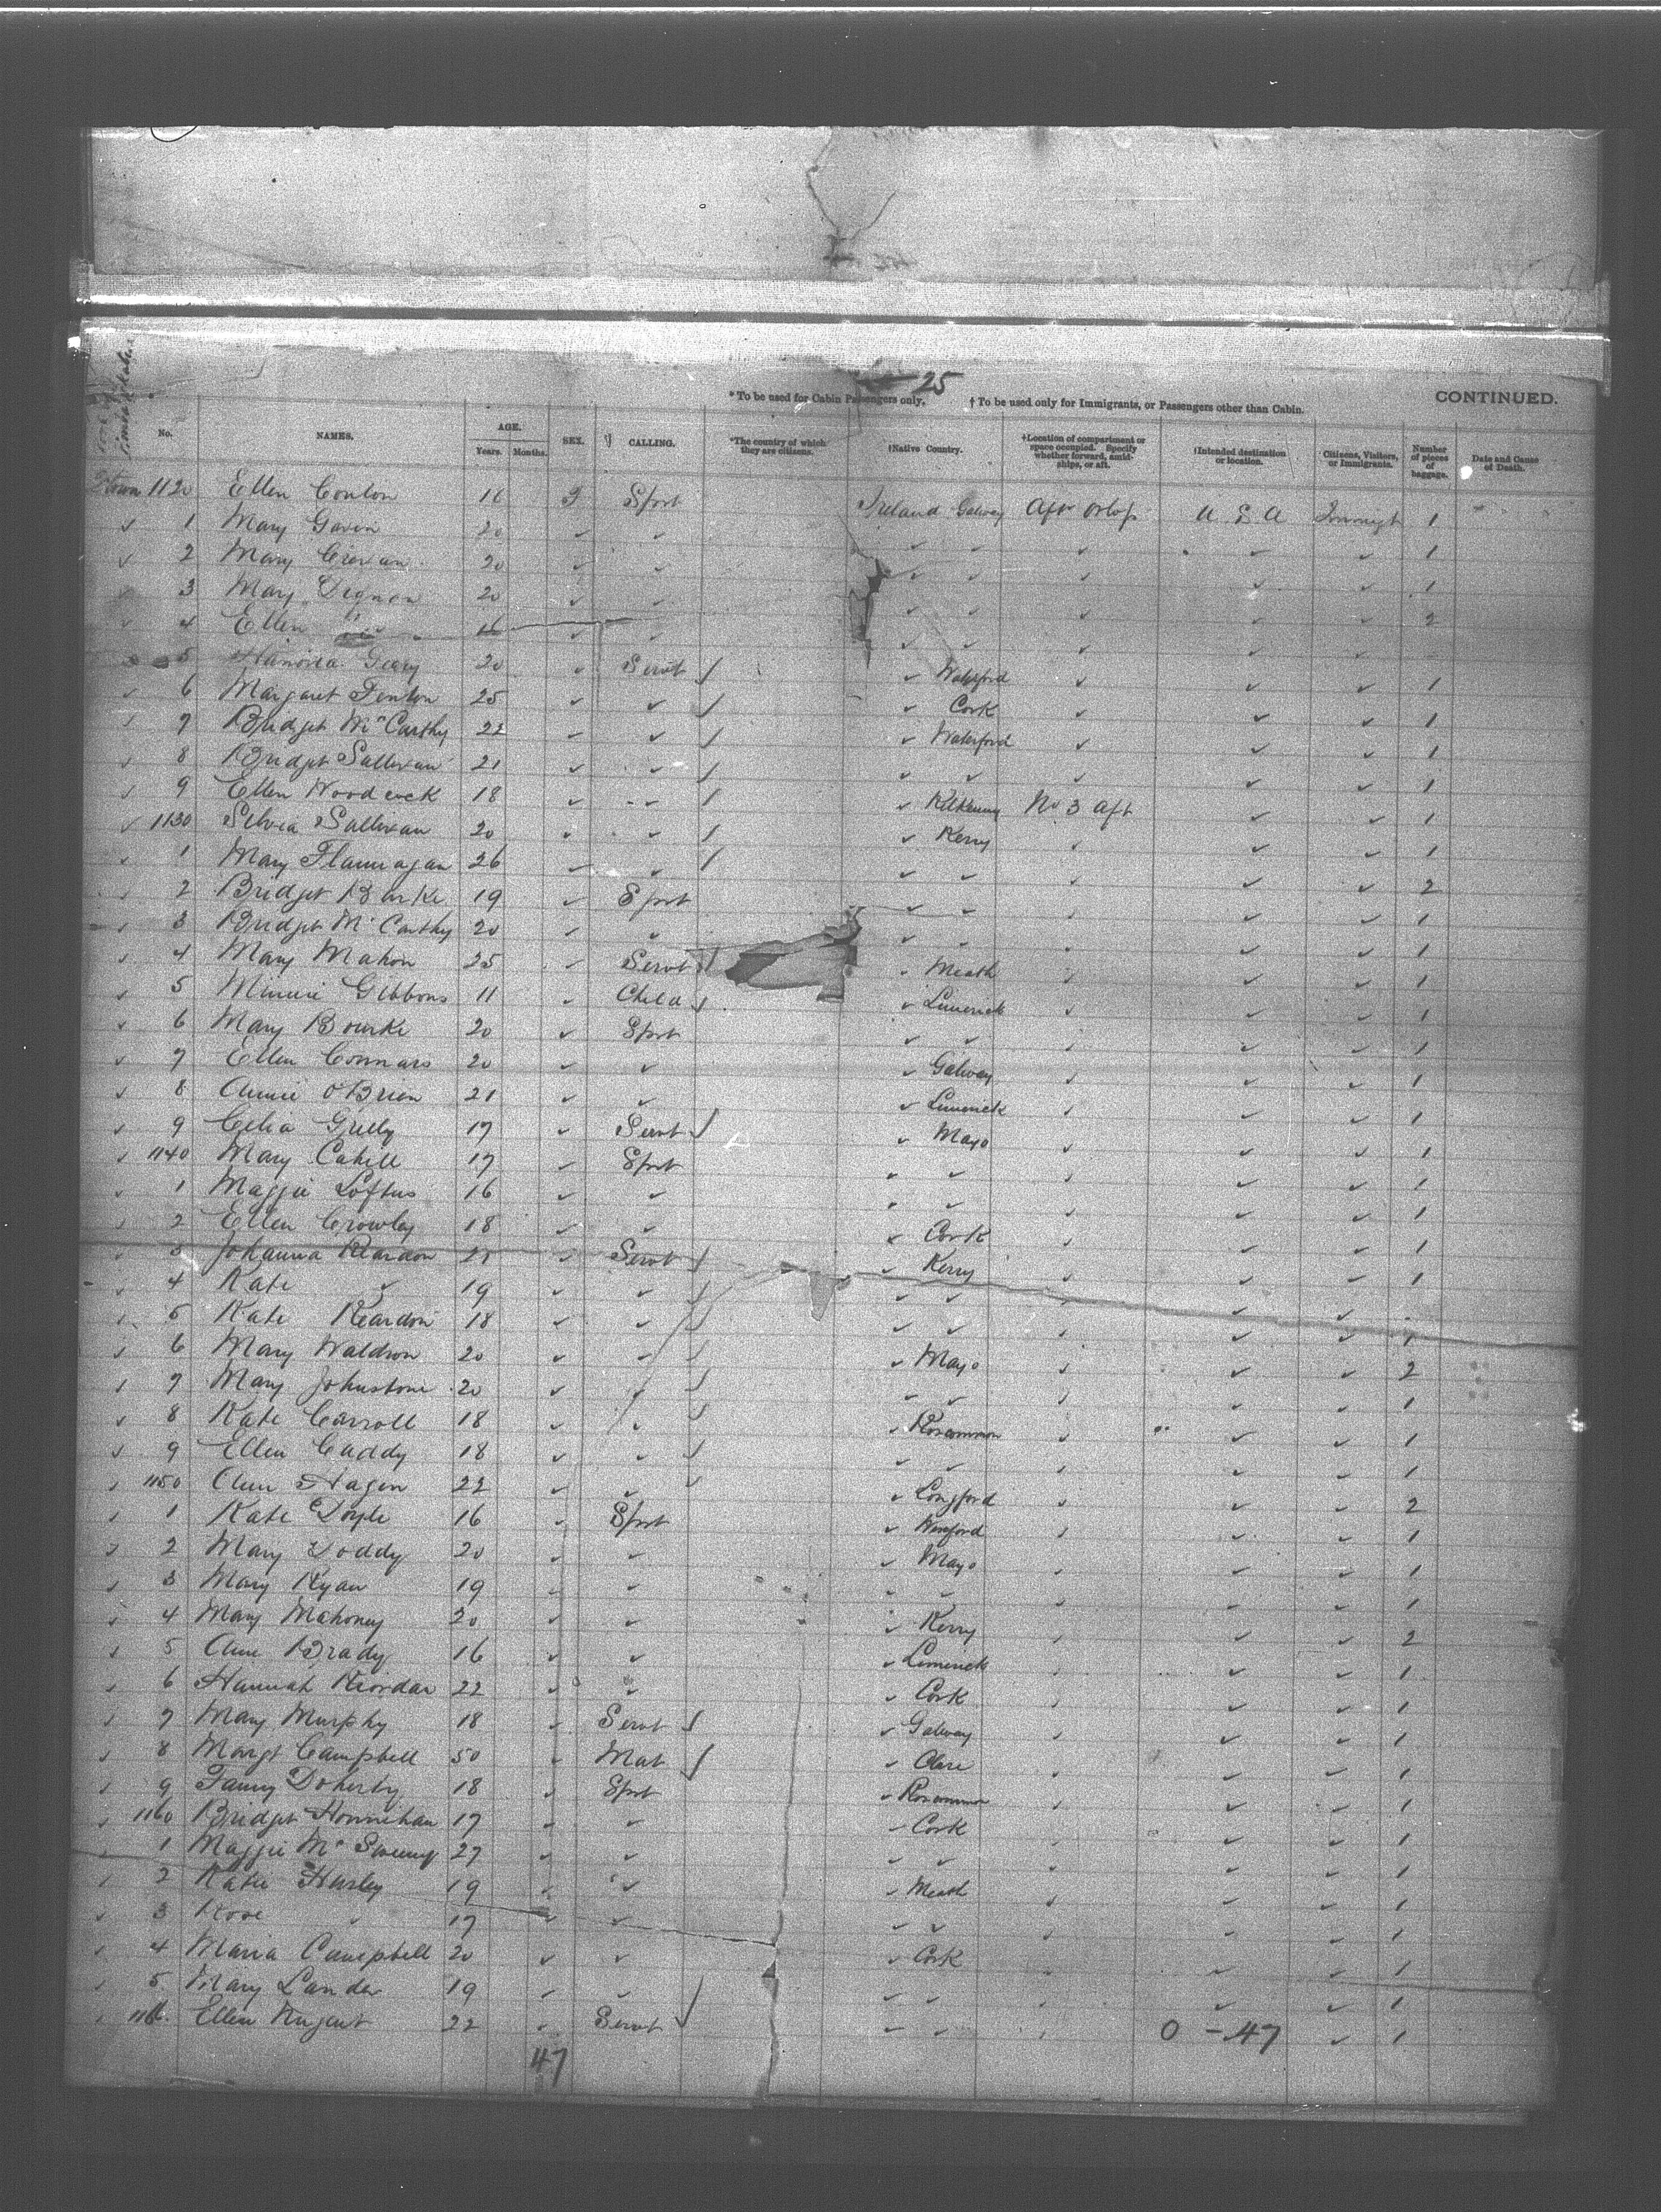 25
*To be used for Cabin Passengers only. †To be used only for Immigrants, or Passengers other than Cabin. CONTINUED.
No. NAMES. AGE. Years. Months. SEX. CALLING. *The country of which they are citizens. †Native Country. †Location of compartment or space occupied. Specify whether forward, amidships, or aft. †Intended destination or location. Citizens, Visitors, or Immigrants. Number of pieces of baggage. Date and Cause of Death.
1120 Ellen Conlon 16 F Spst Ireland Galway Aft Orlop U S A Immigt 1
✓ 1 Mary Gavin 20 ✓ ✓ ✓ ✓ ✓ ✓ ✓ 1
✓ 2 Mary 20 ✓ ✓ ✓ ✓ ✓ ✓ ✓ 1
✓ 3 Mary Dignan 20 ✓ ✓ ✓ ✓ ✓ ✓ ✓ 2
✓ 4 Ellen 16 ✓ ✓ ✓ ✓ ✓ ✓ ✓
5 Hanoria Geary 20 ✓ Servt ✓ Waterford ✓ ✓ ✓ 1
✓ 6 Margaret Fenton 25 ✓ ✓ ✓ Cork ✓ ✓ ✓ 1
✓ 7 Bridget McCarthy 22 ✓ ✓ ✓ Waterford ✓ ✓ ✓ 1
✓ 8 Bridget Sullivan 21 ✓ ✓ ✓ ✓ ✓ ✓ ✓ 1
✓ 9 Ellen Woodcock 18 ✓ ✓ ✓ Kilkenny No 3 Aft ✓ ✓ 1
✓ 1130 Sullivan 20 ✓ ✓ ✓ Kerry ✓ ✓ ✓ 1
✓ 1 Mary Flannagan 26 ✓ ✓ ✓ ✓ ✓ ✓ ✓ 2
✓ 2 Bridget Burke 19 ✓ Spst ✓ ✓ ✓ ✓ ✓ 1
✓ 3 Bridget McCarthy 20 ✓ ✓ ✓ ✓ ✓ ✓ ✓ 1
✓ 4 Mary Mahon 25 ✓ Servt ✓ Meath ✓ ✓ ✓ 1
✓ 5 Minnie Gibbons 11 ✓ Child ✓ Limerick ✓ ✓ ✓ 1
✓ 6 Mary Bourke 20 ✓ Spst ✓ ✓ ✓ ✓ ✓ 1
✓ 7 Ellen Connars 20 ✓ ✓ ✓ Galway ✓ ✓ ✓ 1
✓ 8 Annie O'Brien 21 ✓ ✓ ✓ Limerick ✓ ✓ ✓ 1
✓ 9 Celia 17 ✓ Servt ✓ Mayo ✓ ✓ ✓ 1
✓ 1140 Mary Cahill 17 ✓ Spst ✓ ✓ ✓ ✓ ✓ 1
✓ 1 Maggie Loftus 16 ✓ ✓ ✓ ✓ ✓ ✓ ✓ 1
✓ 2 Ellen Crowley 18 ✓ ✓ ✓ Cork ✓ ✓ ✓ 1
✓ 3 Johanna Reardon 21 ✓ Servt ✓ Kerry ✓ ✓ ✓ 1
✓ 4 Kate ✓ 19 ✓ ✓ ✓ ✓ ✓ ✓ ✓
✓ 5 Kate Reardon 18 ✓ ✓ ✓ ✓ ✓ ✓ ✓ 1
✓ 6 Mary Waldron 20 ✓ ✓ ✓ Mayo ✓ ✓ ✓ 2
✓ 7 Mary Johnstone 20 ✓ ✓ ✓ ✓ ✓ ✓ ✓ 1
✓ 8 Kate Carroll 18 ✓ ✓ ✓ Roscommon ✓ ✓ ✓ 1
✓ 9 Ellen Cuddy 18 ✓ ✓ ✓ ✓ ✓ ✓ ✓ 1
✓ 1150 Ann Hagen 22 ✓ ✓ ✓ Longford ✓ ✓ ✓ 2
✓ 1 Kate Doyle 16 ✓ Spst ✓ Wexford ✓ ✓ ✓ 1
✓ 2 Mary Doddy 20 ✓ ✓ ✓ Mayo ✓ ✓ ✓ 1
✓ 3 Mary Ryan 19 ✓ ✓ ✓ ✓ ✓ ✓ ✓ 1
✓ 4 Mary Mahoney 20 ✓ ✓ ✓ Kerry ✓ ✓ ✓ 2
✓ 5 Ann Brady 16 ✓ ✓ ✓ Limerick ✓ ✓ ✓ 1
✓ 6 Hannah Riordan 22 ✓ ✓ ✓ Cork ✓ ✓ ✓ 1
✓ 7 Mary Murphy 18 ✓ Servt ✓ Galway ✓ ✓ ✓ 1
✓ 8 Margt Campbell 50 ✓ Mat ✓ Clare ✓ ✓ ✓ 1
✓ 9 Fanny Doherty 18 ✓ Spst ✓ Roscommon ✓ ✓ ✓ 1
✓ 1160 Bridget Hounihan 17 ✓ ✓ ✓ Cork ✓ ✓ ✓ 1
✓ 1 Maggie McSweeney 27 ✓ ✓ ✓ ✓ ✓ ✓ ✓ 1
✓ 2 Katie Hurley 19 ✓ ✓ ✓ Meath ✓ ✓ ✓ 1
✓ 3 Rose ✓ 17 ✓ ✓ ✓ ✓ ✓ ✓ ✓ 1
✓ 4 Maria Campbell 20 ✓ ✓ ✓ Cork ✓ ✓ ✓ 1
✓ 5 Mary Lander 19 ✓ ✓ ✓ ✓ ✓ ✓ ✓ 1
✓ 116 Ellen Nugent 22 ✓ Servt ✓ ✓ ✓ 0 - 47 ✓ 1
47